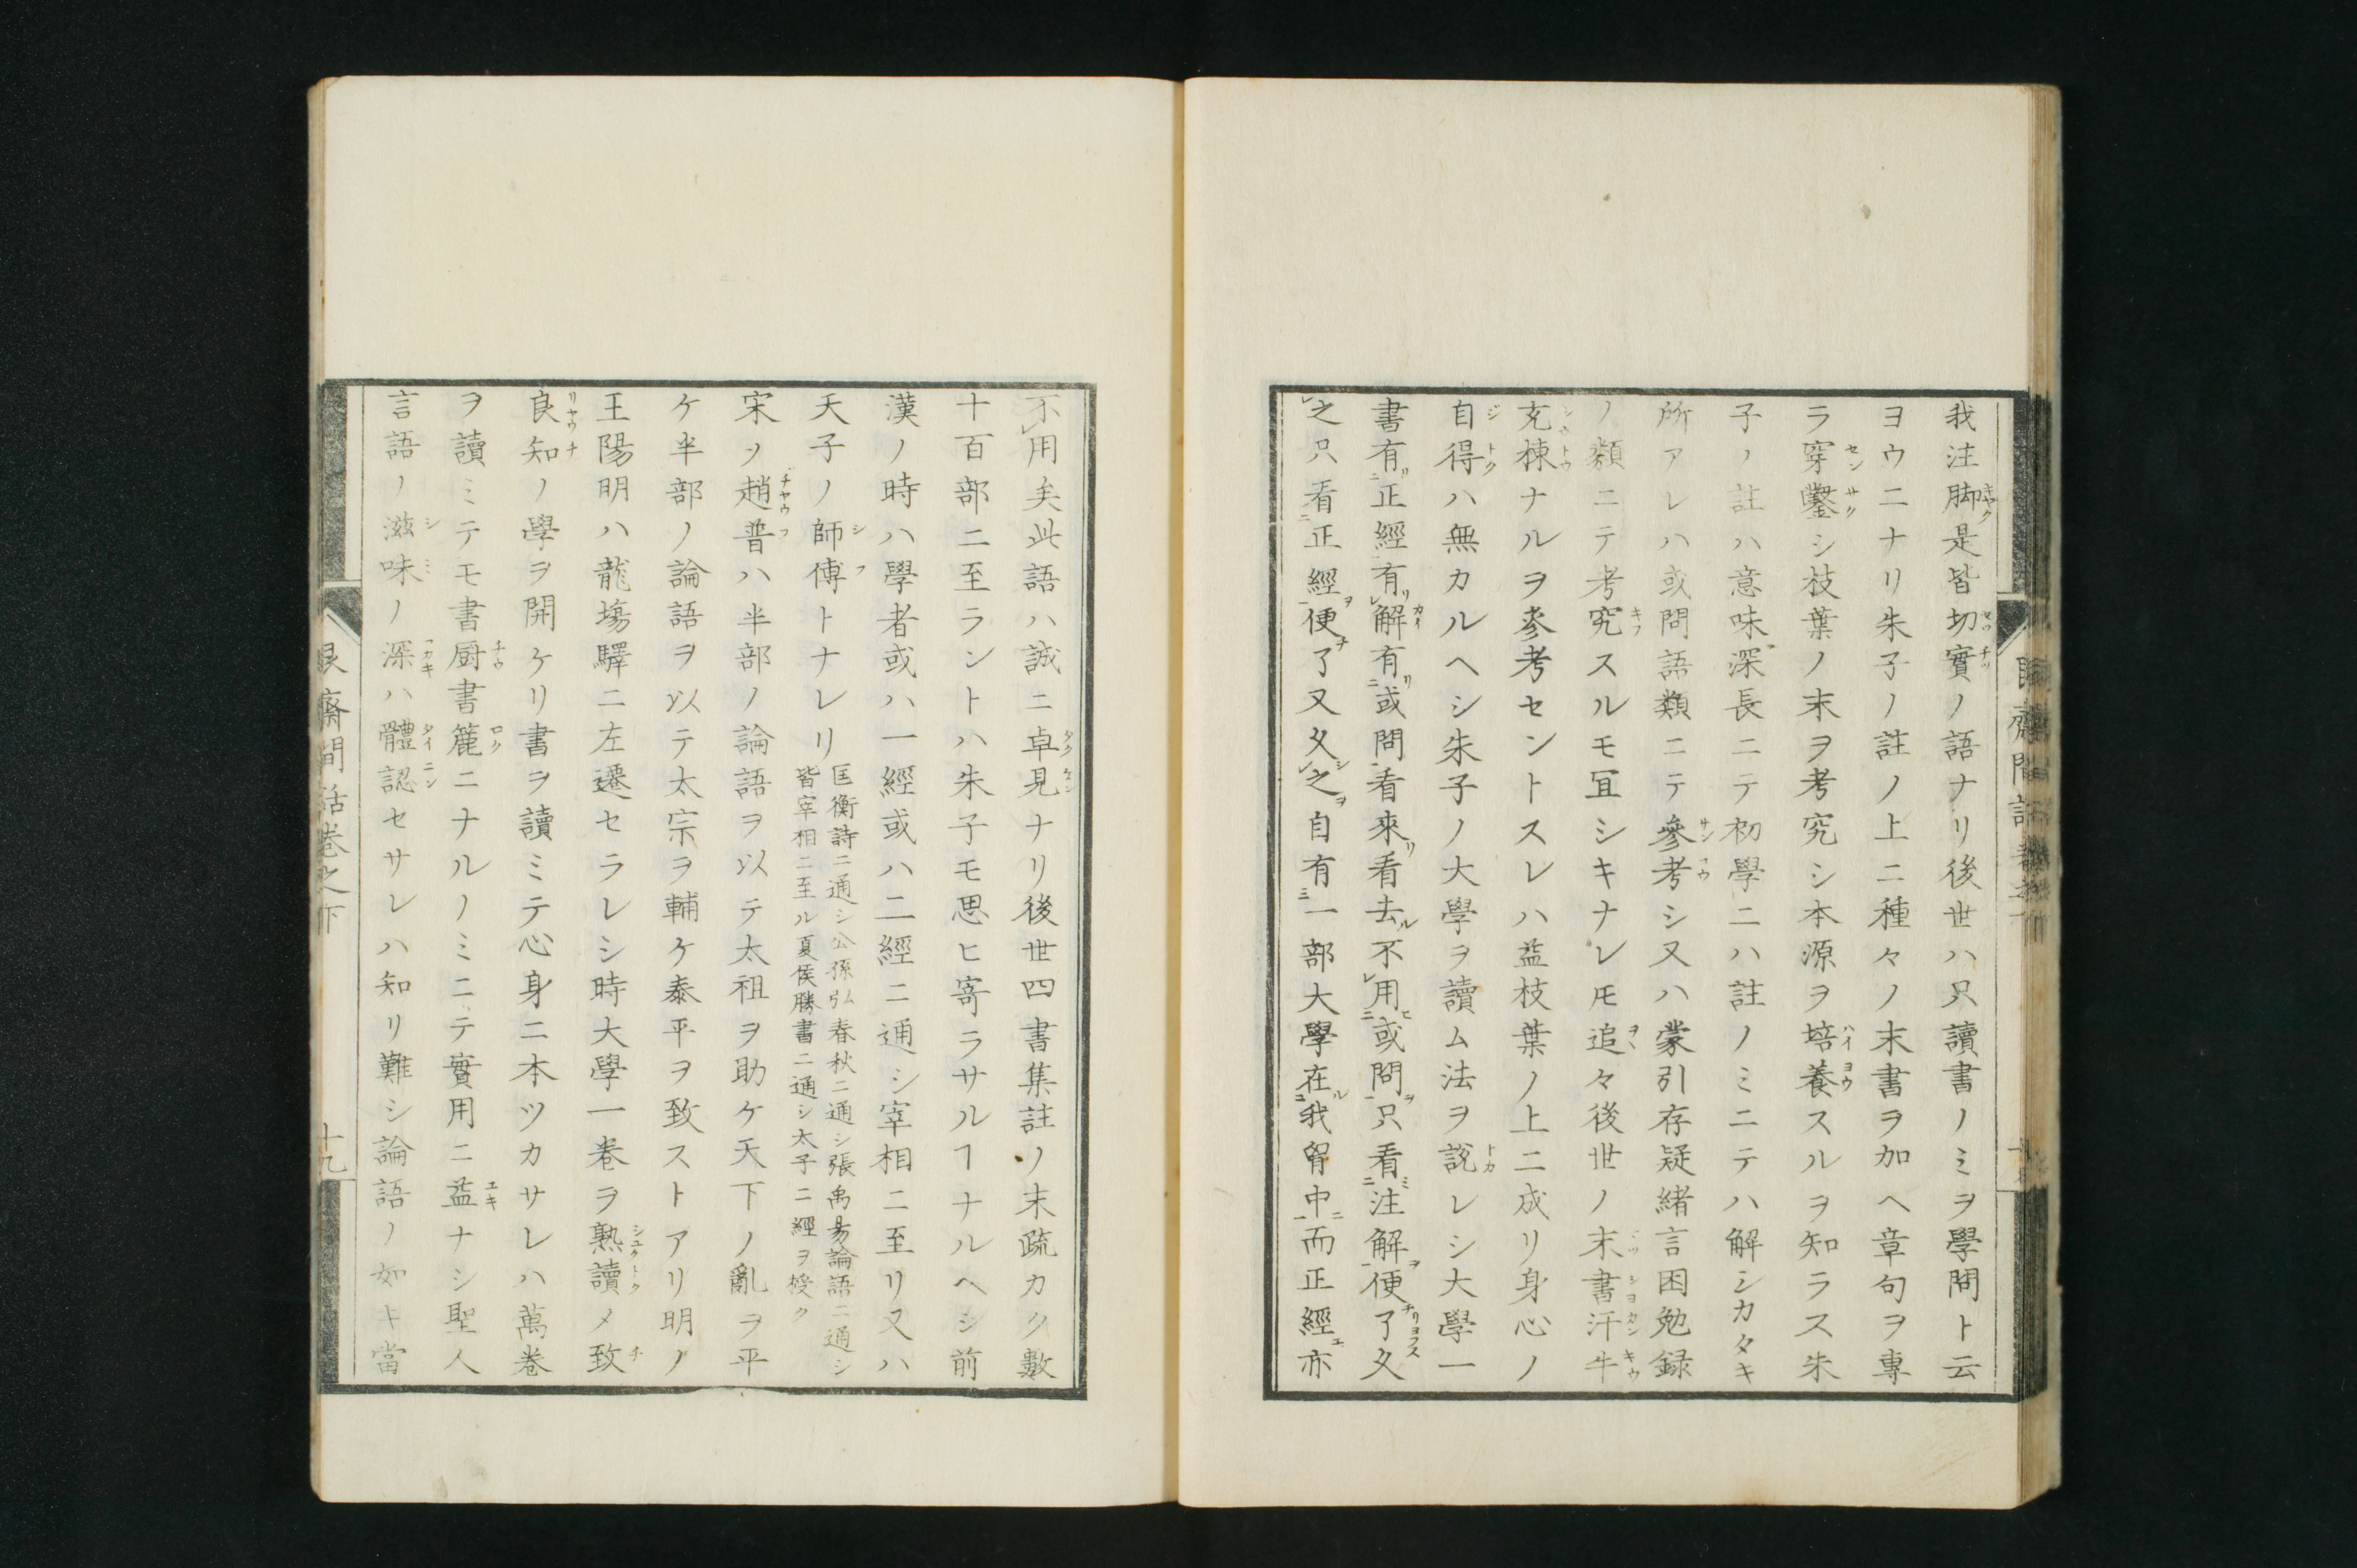 我注脚是皆切實ノ語ナリ後世ハ只讀書ノミヲ學問ト云
ヨウニナリ朱子ノ註ノ上ニ種々ノ末書ヲ加ヘ章句ヲ專
ラ穿鑿シ枝葉ノ末ヲ考究シ本源ヲ培養スルヲ知ラス朱
子ノ註ハ意味深長ニテ初學ニハ註ノミニテハ解シカタキ
所アレハ或問語類ニテ參考シ又ハ蒙引存疑緒言困勉録
ノ類ニテ考究スルモ冝シキナレ𪜈追々後世ノ末書汗牛
充棟ナルヲ參考セントスレハ益枝葉ノ上ニ成リ身心ノ
自得ハ無カルヘシ朱子ノ大學ヲ讀ム法ヲ説レシ大學一
書有正經有解有或問看來看去不用或問只看注解便了久
之只看正經便了又久之自有一部大學在我胷中而正經亦
不用矣此語ハ誠ニ卓見ナリ後世四書集註ノ末疏カク數
十百部ニ至ラントハ朱子モ思ヒ寄ラサルヿナルヘシ前
漢ノ時ハ學者或ハ一經或ハ二經ニ通シ宰相ニ至リ又ハ
天子ノ師傅トナレリ
匡衡詩ニ通シ公孫弘春秋ニ通シ張禹易論語ニ通シ
皆宰相ニ至ル夏侯勝書ニ通シ太子ニ經ヲ授ク
宋ノ趙普ハ半部ノ論語ヲ以テ太祖ヲ助ケ天下ノ亂ヲ平
ケ半部ノ論語ヲ以テ太宗ヲ輔ケ泰平ヲ致ストアリ明ノ
王陽明ハ龍塲驛ニ左遷セラレシ時大學一巻ヲ熟讀メ致
良知ノ學ヲ開ケリ書ヲ讀ミテ心身ニ本ツカサレハ萬巻
ヲ讀ミテモ書厨書簏ニナルノミニテ實用ニ益ナシ聖人
言語ノ滋味ノ深ハ體認セサレハ知リ難シ論語ノ如キ當
艮齋間話巻之下
十九